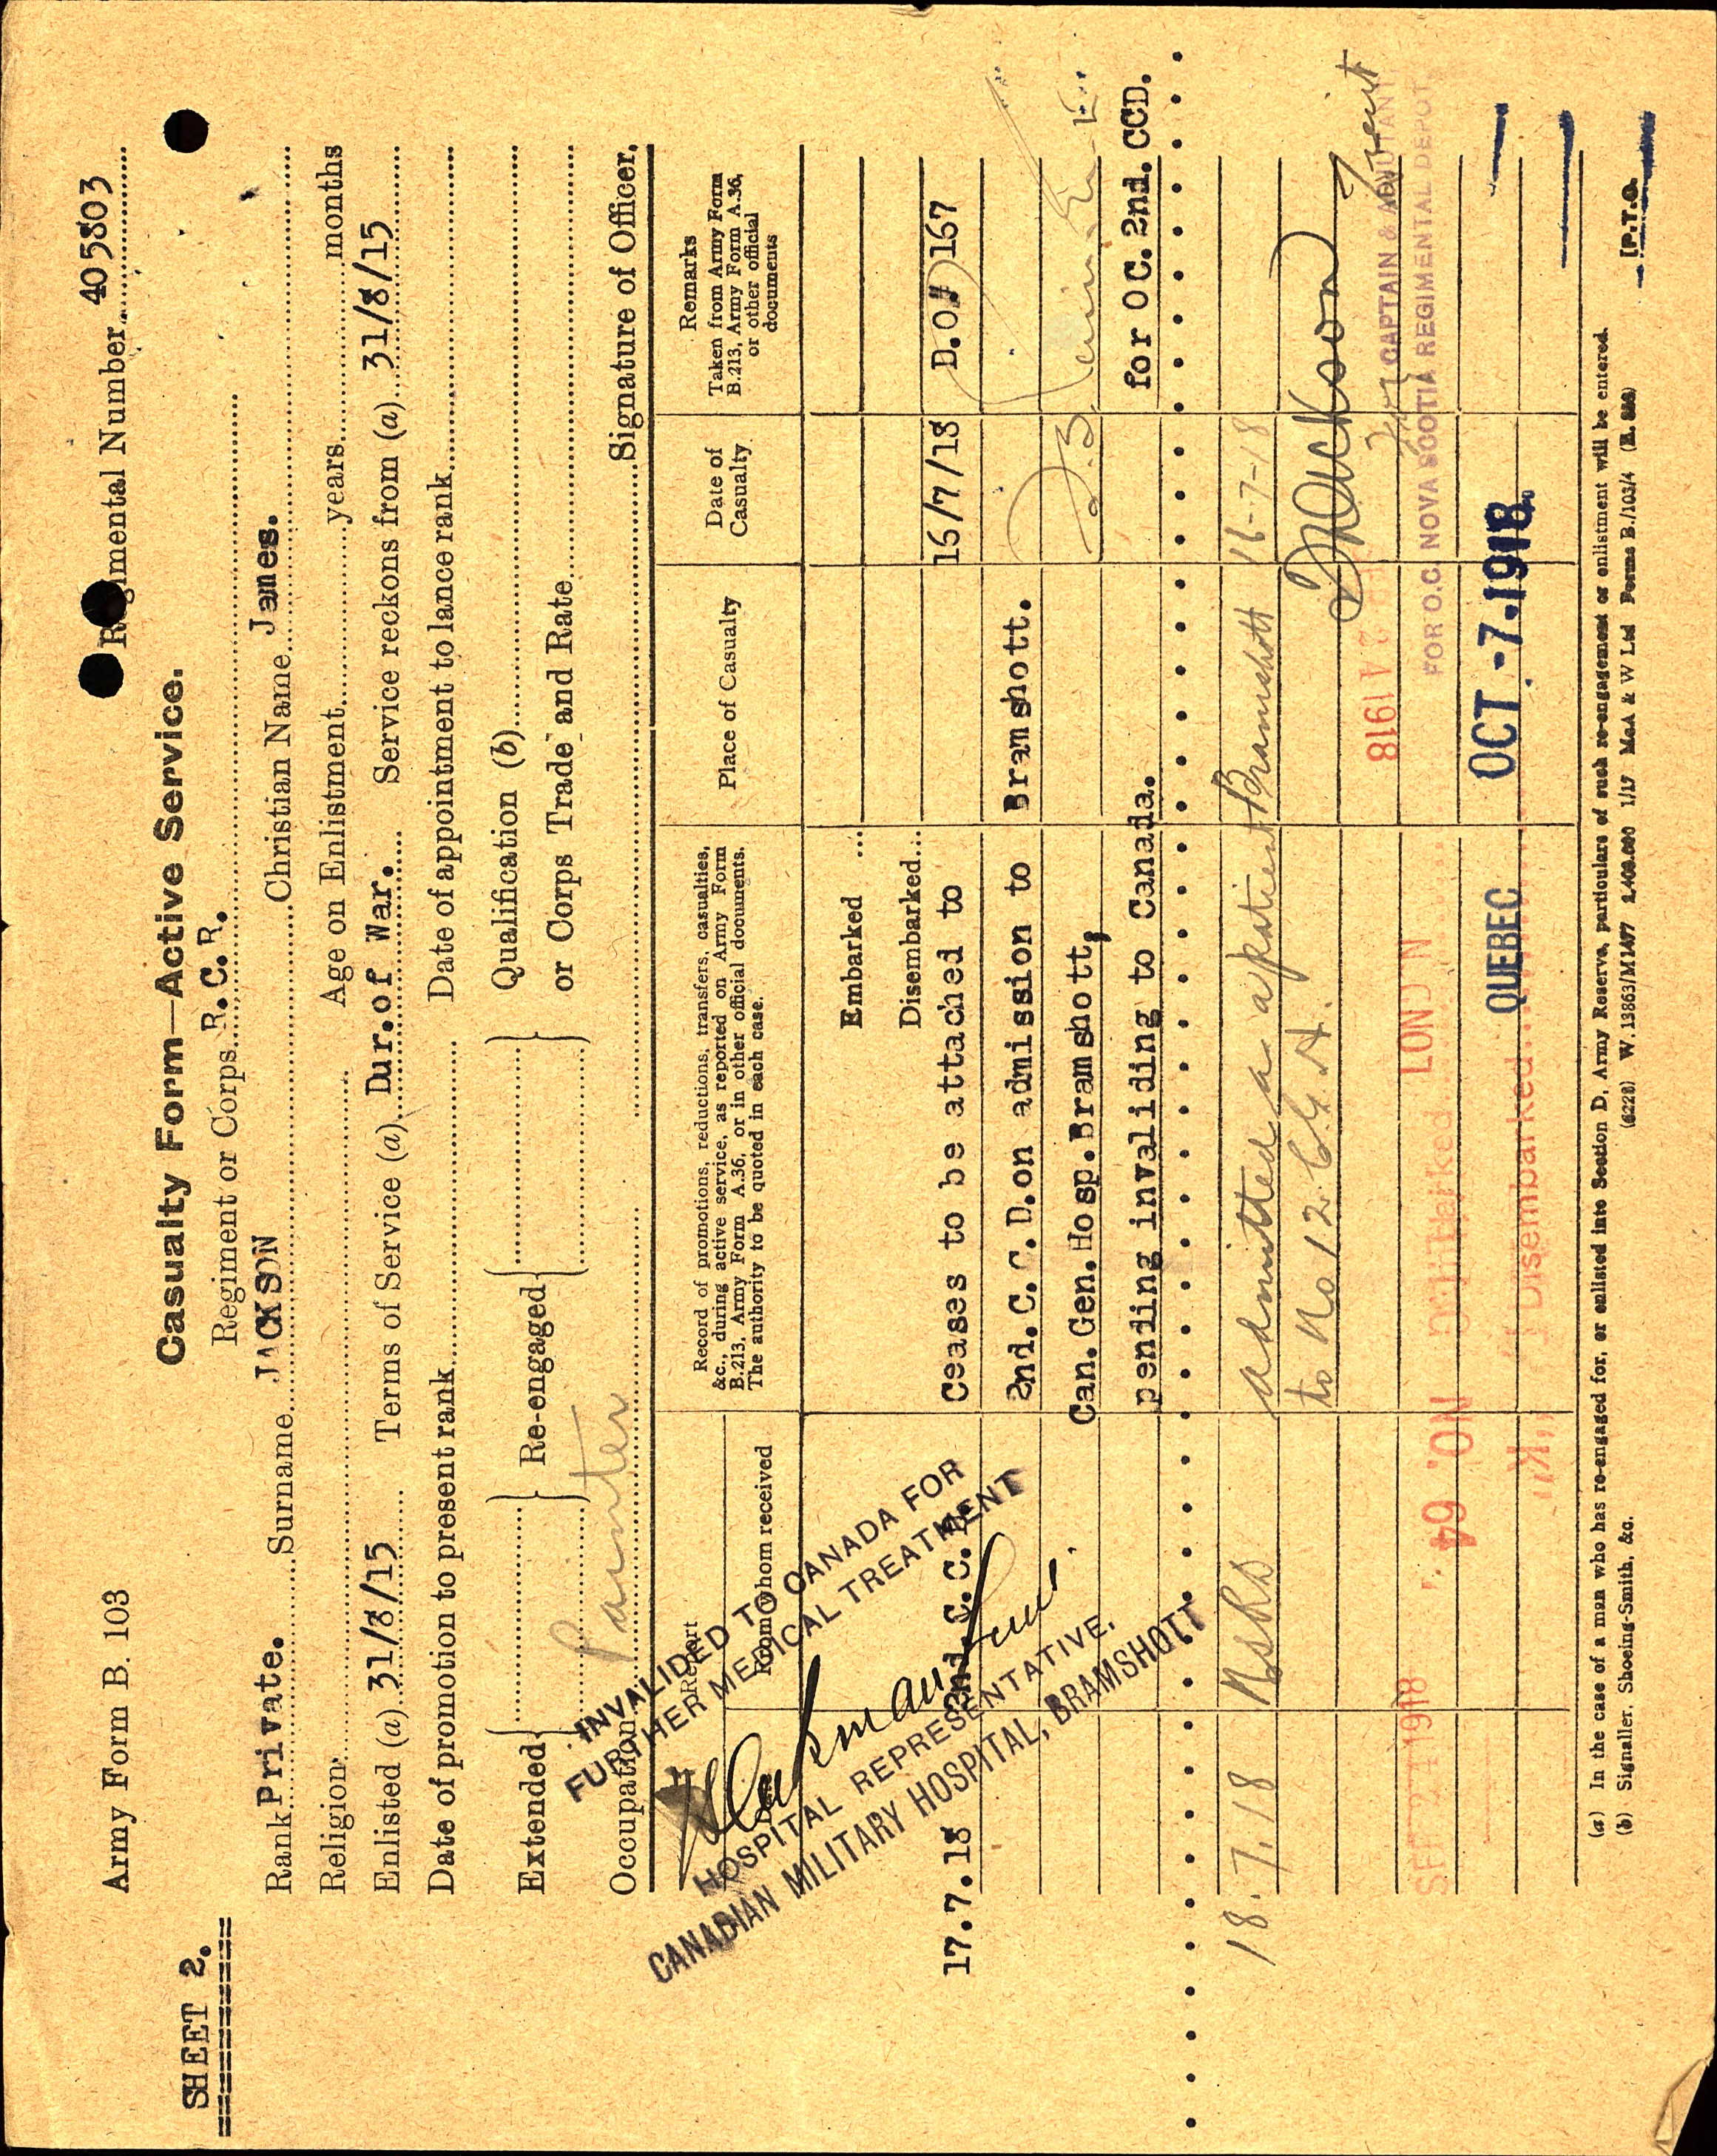 SHEET 2.
Army Form B. 103
Casualty Form—Active Service.
Regimental Number 405803
Regiment or Corps R.C.R.
Rank Private. Surname JACKSON Christian Name James.
Religion Age on Enlistment years months
Enlisted (a) 31/8/15 Terms of Service (a) Dur.of War. Service reckons from (a) 31/8/15
Date of promotion to present rank Date of appointment to lance rank
Extended Re-engaged Qualification (b)
or Corps Trade and Rate
Occupation Painter Signature of Officer.
Report
From whom received
Record of promotions, reductions, transfers, casualties,
&c., during active service, as reported on Army Form
B.213, Army Form A.36, or in other official documents.
The authority to be quoted in each case.
Place of Casualty
Date of
Casualty
Remarks
Taken from Army Form
B.213, Army Form A.36,
or other official
documents
Embarked ...
Disembarked...
17.7.18 2nd.C.C.D. Ceases to be attached to 16/7/18 D.O.# 167
2nd.C.C.D.on admission to Bramshott.
Can.Gen.Hosp.Bramshott,
pending invaliding to Canada. for OC.2nd.CCD.
INVALIDED TO CANADA FOR
FURTHER MEDICAL TREATMENT
HOSPITAL REPRESENTATIVE,
CANADIAN MILITARY HOSPITAL, BRAMSHOTT
18.7.18 NSRD admitted as a patient Bramshott 16-7-18
to No 12 C.G.H.
for CAPTAIN & ADJUTANT
FOR O.C. NOVA SCOTIA REGIMENTAL DEPOT
1918
NO. 64 Embarked LONDON
Disembarked QUEBEC OCT -7.1918.
"K"
(a) In the case of a man who has re-engaged for, or enlisted into Section D, Army Reserve, particulars of such re-engagement or enlistment will be entered.
(b) Signaller, Shoeing-Smith, &c.
(6228) W.13863/M1477 2,400,000 1/17 McA & W Ltd Forms B./103/4 (E. 886) [P.T.O.